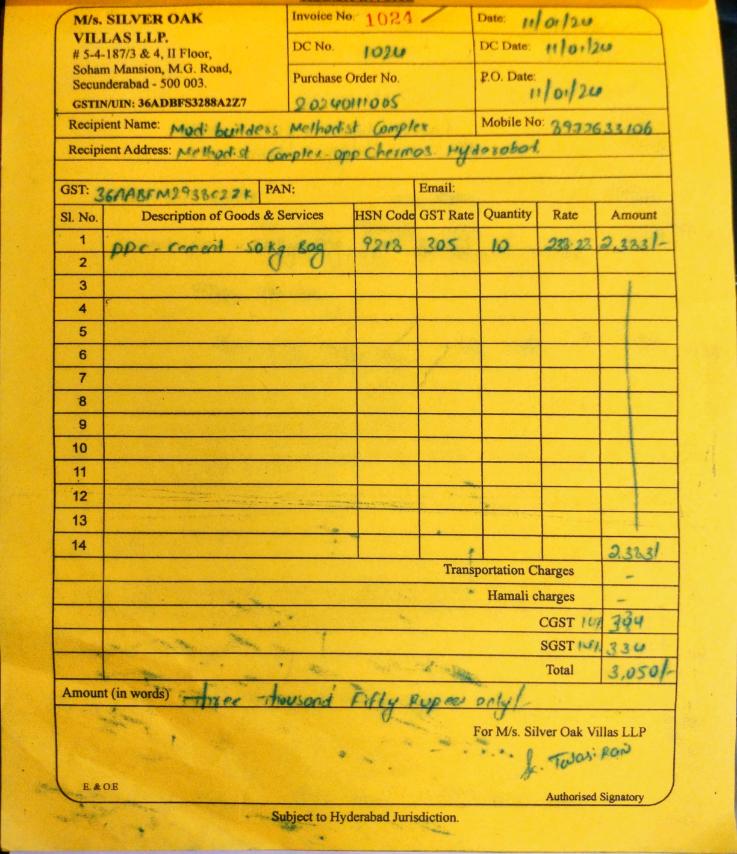 M/s. SILVER OAK
VILLAS LLP.
# 5-4-187/3 & 4, II Floor,
Soham Mansion, M.G. Road,
Secunderabad - 500 003.
GSTIN/UIN: 36ADBFS3288A2Z7
Invoice No. 1024
Date: 11/01/24
DC No. 1024
DC Date: 11/01/24
Purchase Order No.
20240111005
P.O. Date:
11/01/24
Recipient Name: Modi builders Methodist Complex
Mobile No:
Recipient Address: Methodist Complex opp Chermas Hyderabad.
GST: PAN: Email:
Sl. No. Description of Goods & Services HSN Code GST Rate Quantity Rate Amount
1 PPC - cement 50 kg Bag 305 10 2,383/-
2
3
4
5
6
7
8
9
10
11
12
13
14 2,383/
Transportation Charges -
Hamali charges -
CGST
SGST 334
Total 3,050/-
Amount (in words) three thousand Fifty Rupees only/-
For M/s. Silver Oak Villas LLP
E. & O.E
Authorised Signatory
Subject to Hyderabad Jurisdiction.